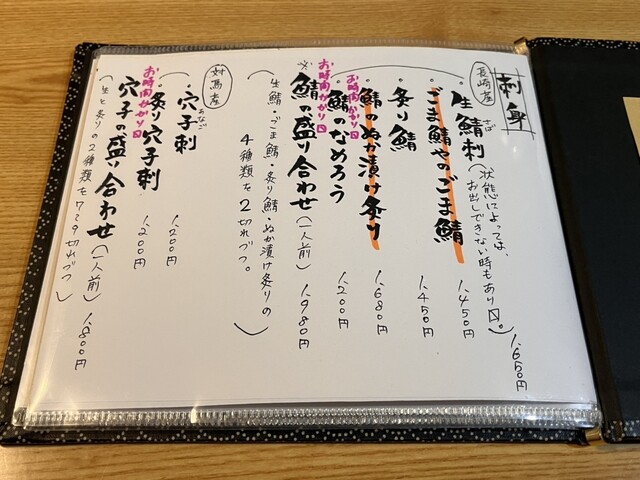 刺身
長崎産
・生鯖刺
さば
(状態によっては、
お出しできない時もあり〼。)
1,650円
・ごま鯖やのごま鯖 1,450円
・炙り鯖 1,450円
・鯖のぬか漬け炙り 1,680円
お時間かかり〼
・鯖のなめろう 1,200円
お時間かかり〼
※鯖の盛り合わせ(一人前) 1,980円
(生鯖・ごま鯖・炙り鯖・ぬか漬け炙りの
4種類を2切れづつ。)
対馬産
・穴子刺 1,200円
あなご
・炙り穴子刺 1,200円
お時間かかり〼
穴子の盛り合わせ(一人前) 1,800円
(生と炙りの2種類を7〜9切れづつ)